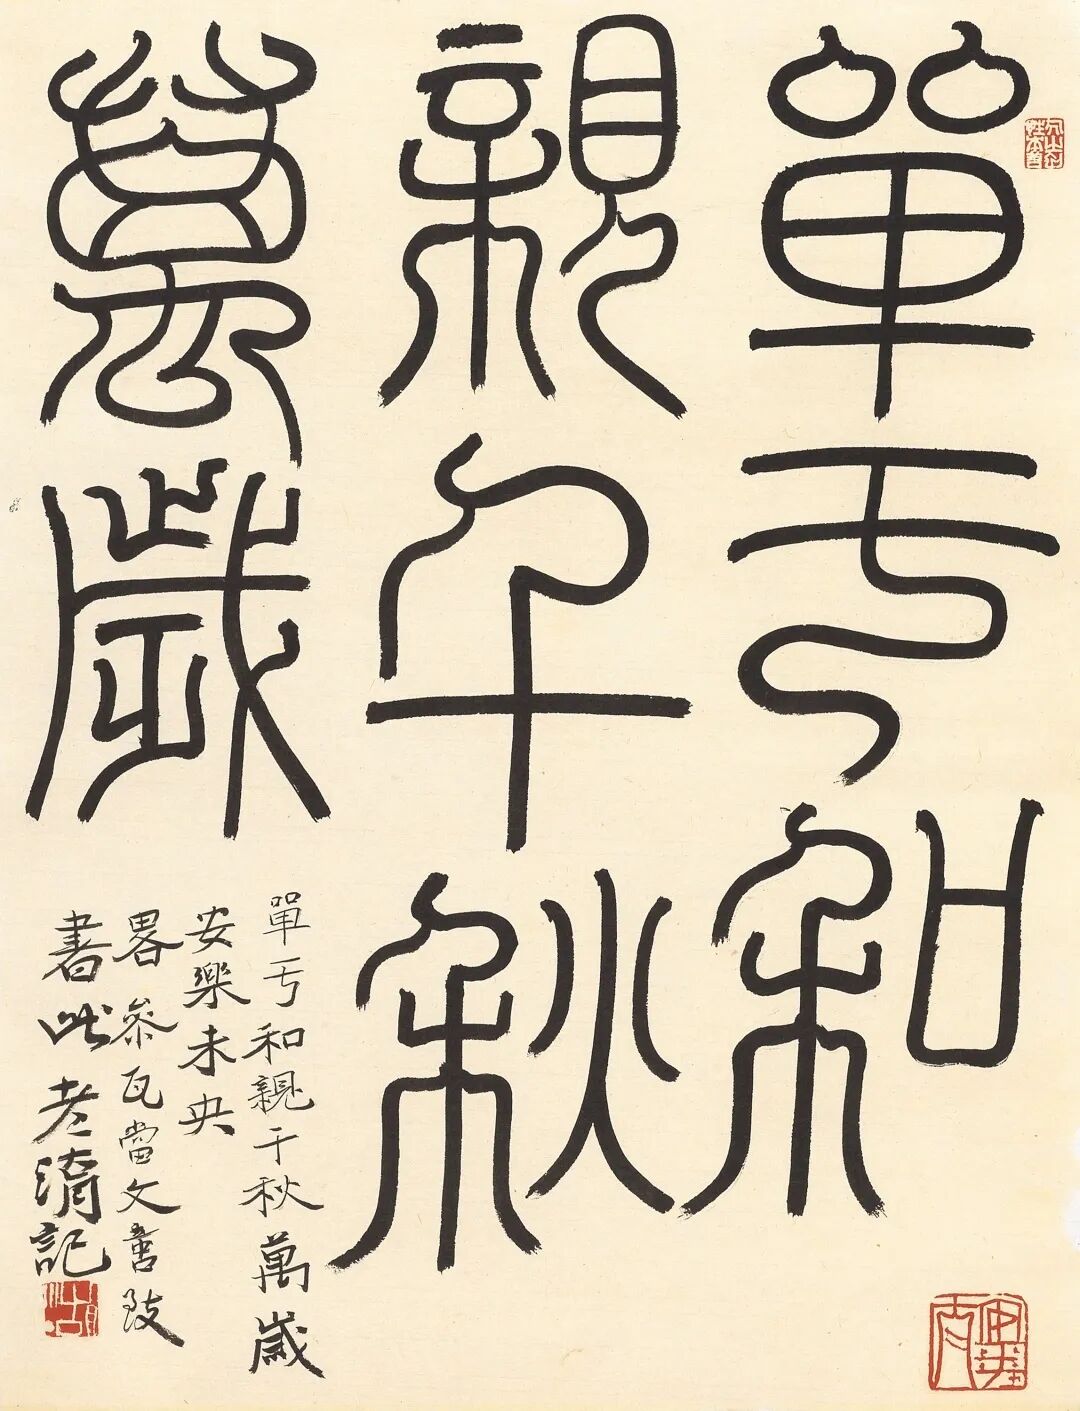 單于和
親千秋
萬歲
單于和親千秋萬歲
安樂未央
畧參瓦當文
書此老記
人之初
性本善